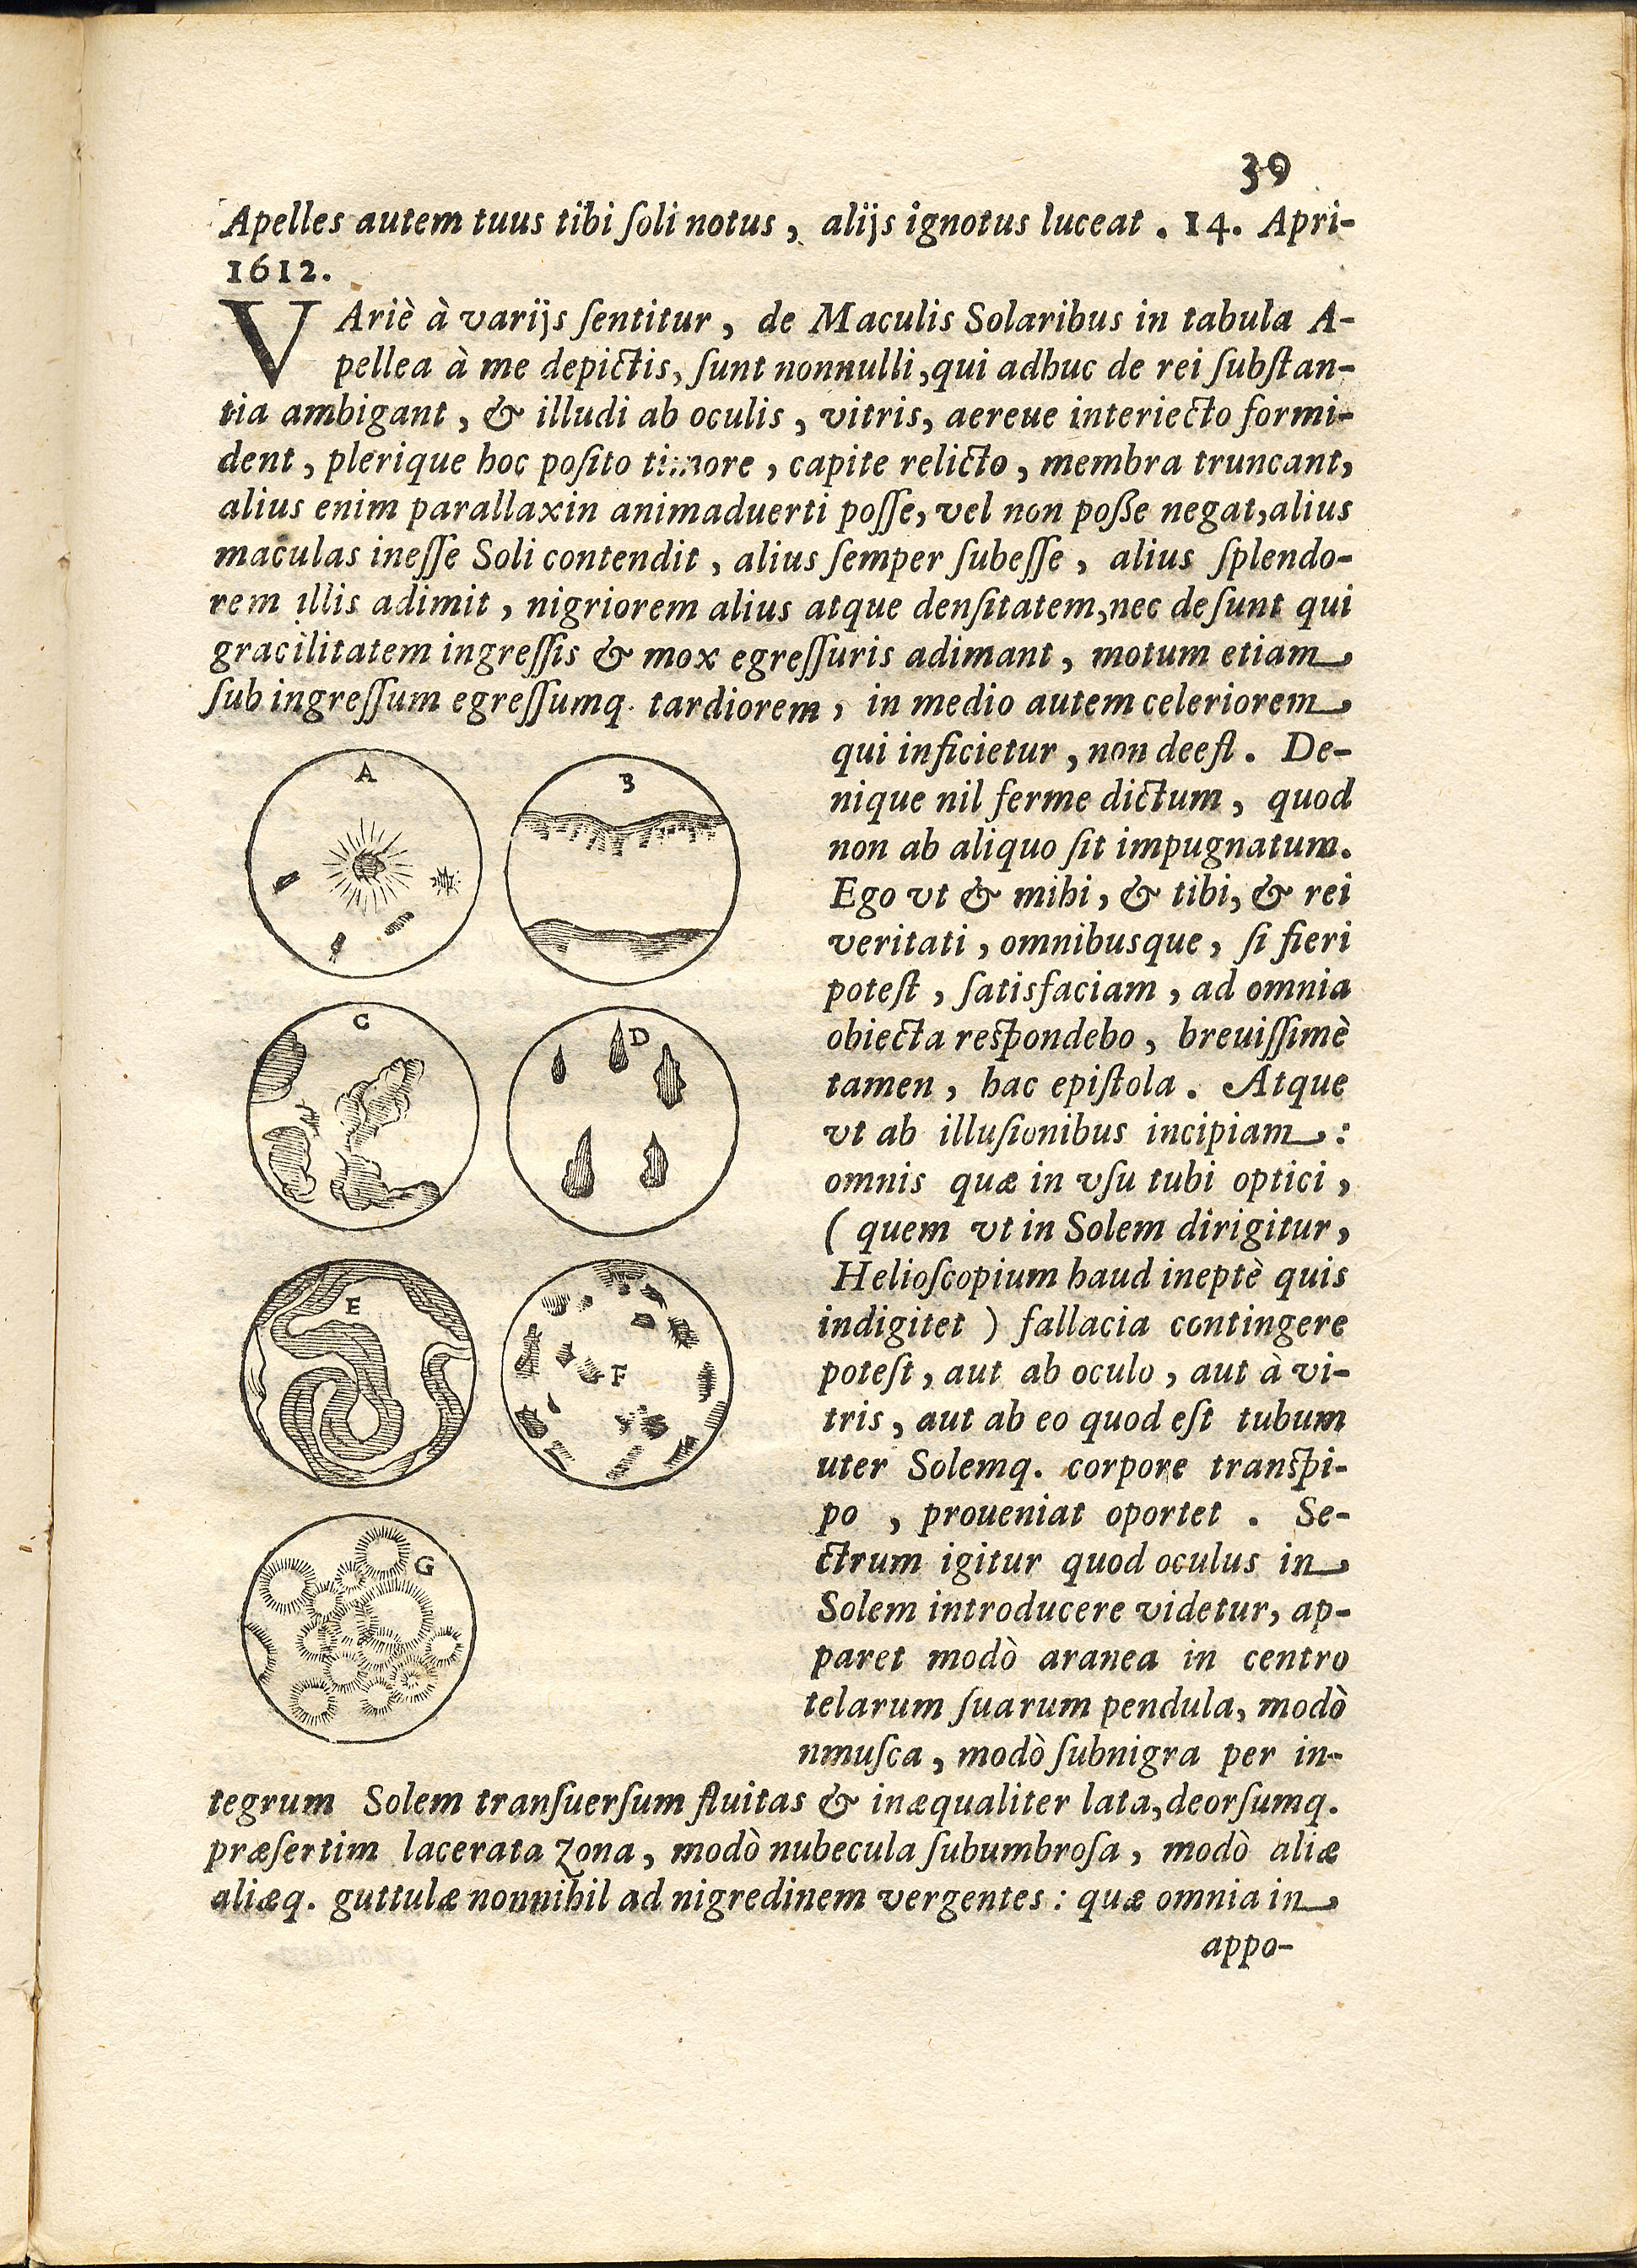 39
Apelles autem tuus tibi ſoli notus, alijs ignotus luceat. 14. Apri-
1612.
VAriè à varijs ſentitur, de Maculis Solaribus in tabula A-
pellea à me depictis, ſunt nonnulli, qui adhuc de rei ſubſtan-
tia ambigant, & illudi ab oculis, vitris, aereue interiecto formi-
dent, plerique hoc poſito timore, capite relicto, membra truncant,
alius enim parallaxin animaduerti poſſe, vel non poſſe negat, alius
maculas ineſſe Soli contendit, alius ſemper ſubeſſe, alius ſplendo-
rem illis adimit, nigriorem alius atque denſitatem, nec deſunt qui
gracilitatem ingreſſis & mox egreſſuris adimant, motum etiam
ſub ingreſſum egreſſumq. tardiorem, in medio autem celeriorem
qui inficietur, non deeſt. De-
nique nil ferme dictum, quod
non ab aliquo ſit impugnatum.
Ego vt & mihi, & tibi, & rei
veritati, omnibusque, ſi fieri
poteſt, ſatisfaciam, ad omnia
obiecta reſpondebo, breuiſſimè
tamen, hac epiſtola. Atque
vt ab illuſionibus incipiam:
omnis quæ in vſu tubi optici,
(quem vt in Solem dirigitur,
Helioſcopium haud ineptè quis
indigitet) fallacia contingere
poteſt, aut ab oculo, aut à vi-
tris, aut ab eo quod eſt tubum
uter Solemq. corpore tranſpi-
po, proueniat oportet. Se-
ctrum igitur quod oculus in
Solem introducere videtur, ap-
paret modò aranea in centro
telarum ſuarum pendula, modò
nmuſca, modò ſubnigra per in-
tegrum Solem tranſuerſum fluitas & inæqualiter lata, deorſumq.
præſertim lacerata zona, modò nubecula ſubumbroſa, modò aliæ
aliæq. guttulæ nonnihil ad nigredinem vergentes: quæ omnia in
appo-
A
B
C
D
E
F
G